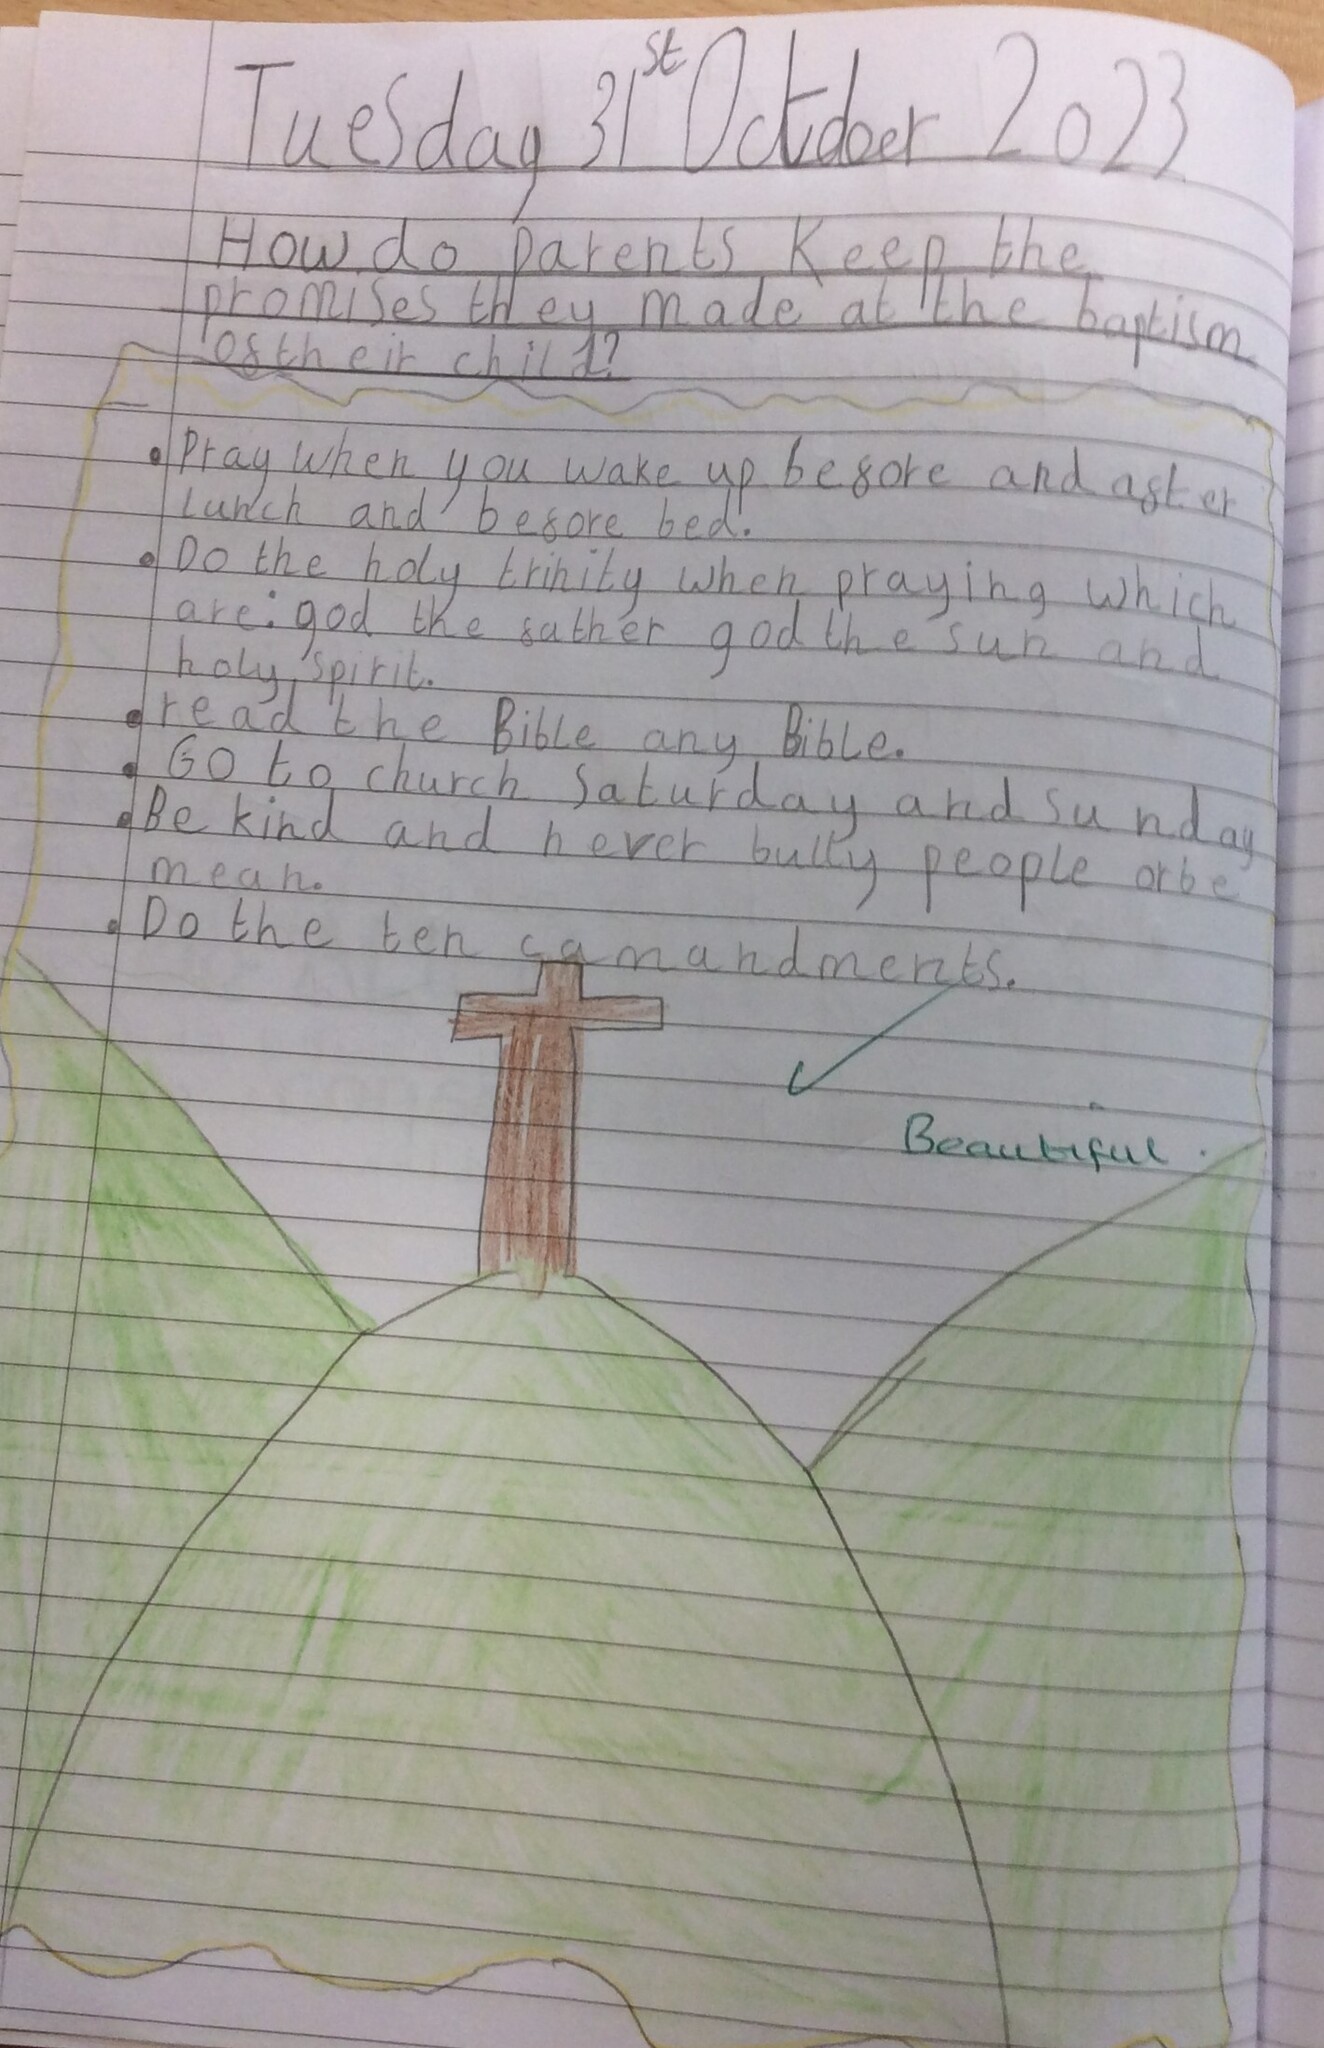 Tuesday 31st October 2023
How do parents keep the
promises they made at the baptism
of their child?
• Pray when you wake up before and after
lunch and before bed.
• Do the holy trinity when praying which
are: god the father god the sun and
holy spirit.
• read the Bible any Bible.
• Go to church Saturday and sunday
• Be kind and never bully people or be
mean.
• Do the ten camandments.
Beautiful.